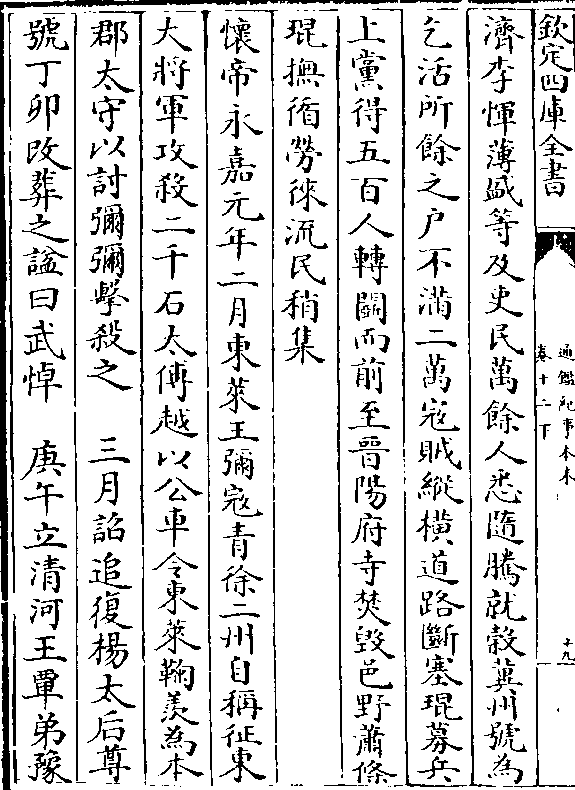 欽定四庫全書
通鑑紀事本末
卷十二下
十九
濟李惲薄盛等及吏民萬餘人悉隨騰就穀冀州號為
乞活所餘之户不滿二萬寇賊縱橫道路斷塞琨募兵
上黨得五百人轉鬬而前至晉陽府寺焚毁邑野蕭條
琨撫循勞徠流民稍集
懷帝永嘉元年二月東萊王彌寇青徐二州自稱征東
大將軍攻殺二千石太傅越以公車令東萊鞠羨為本
郡太守以討彌彌擊殺之　三月詔追復楊太后尊
號丁卯改葬之諡曰武悼　庚午立清河王覃弟豫